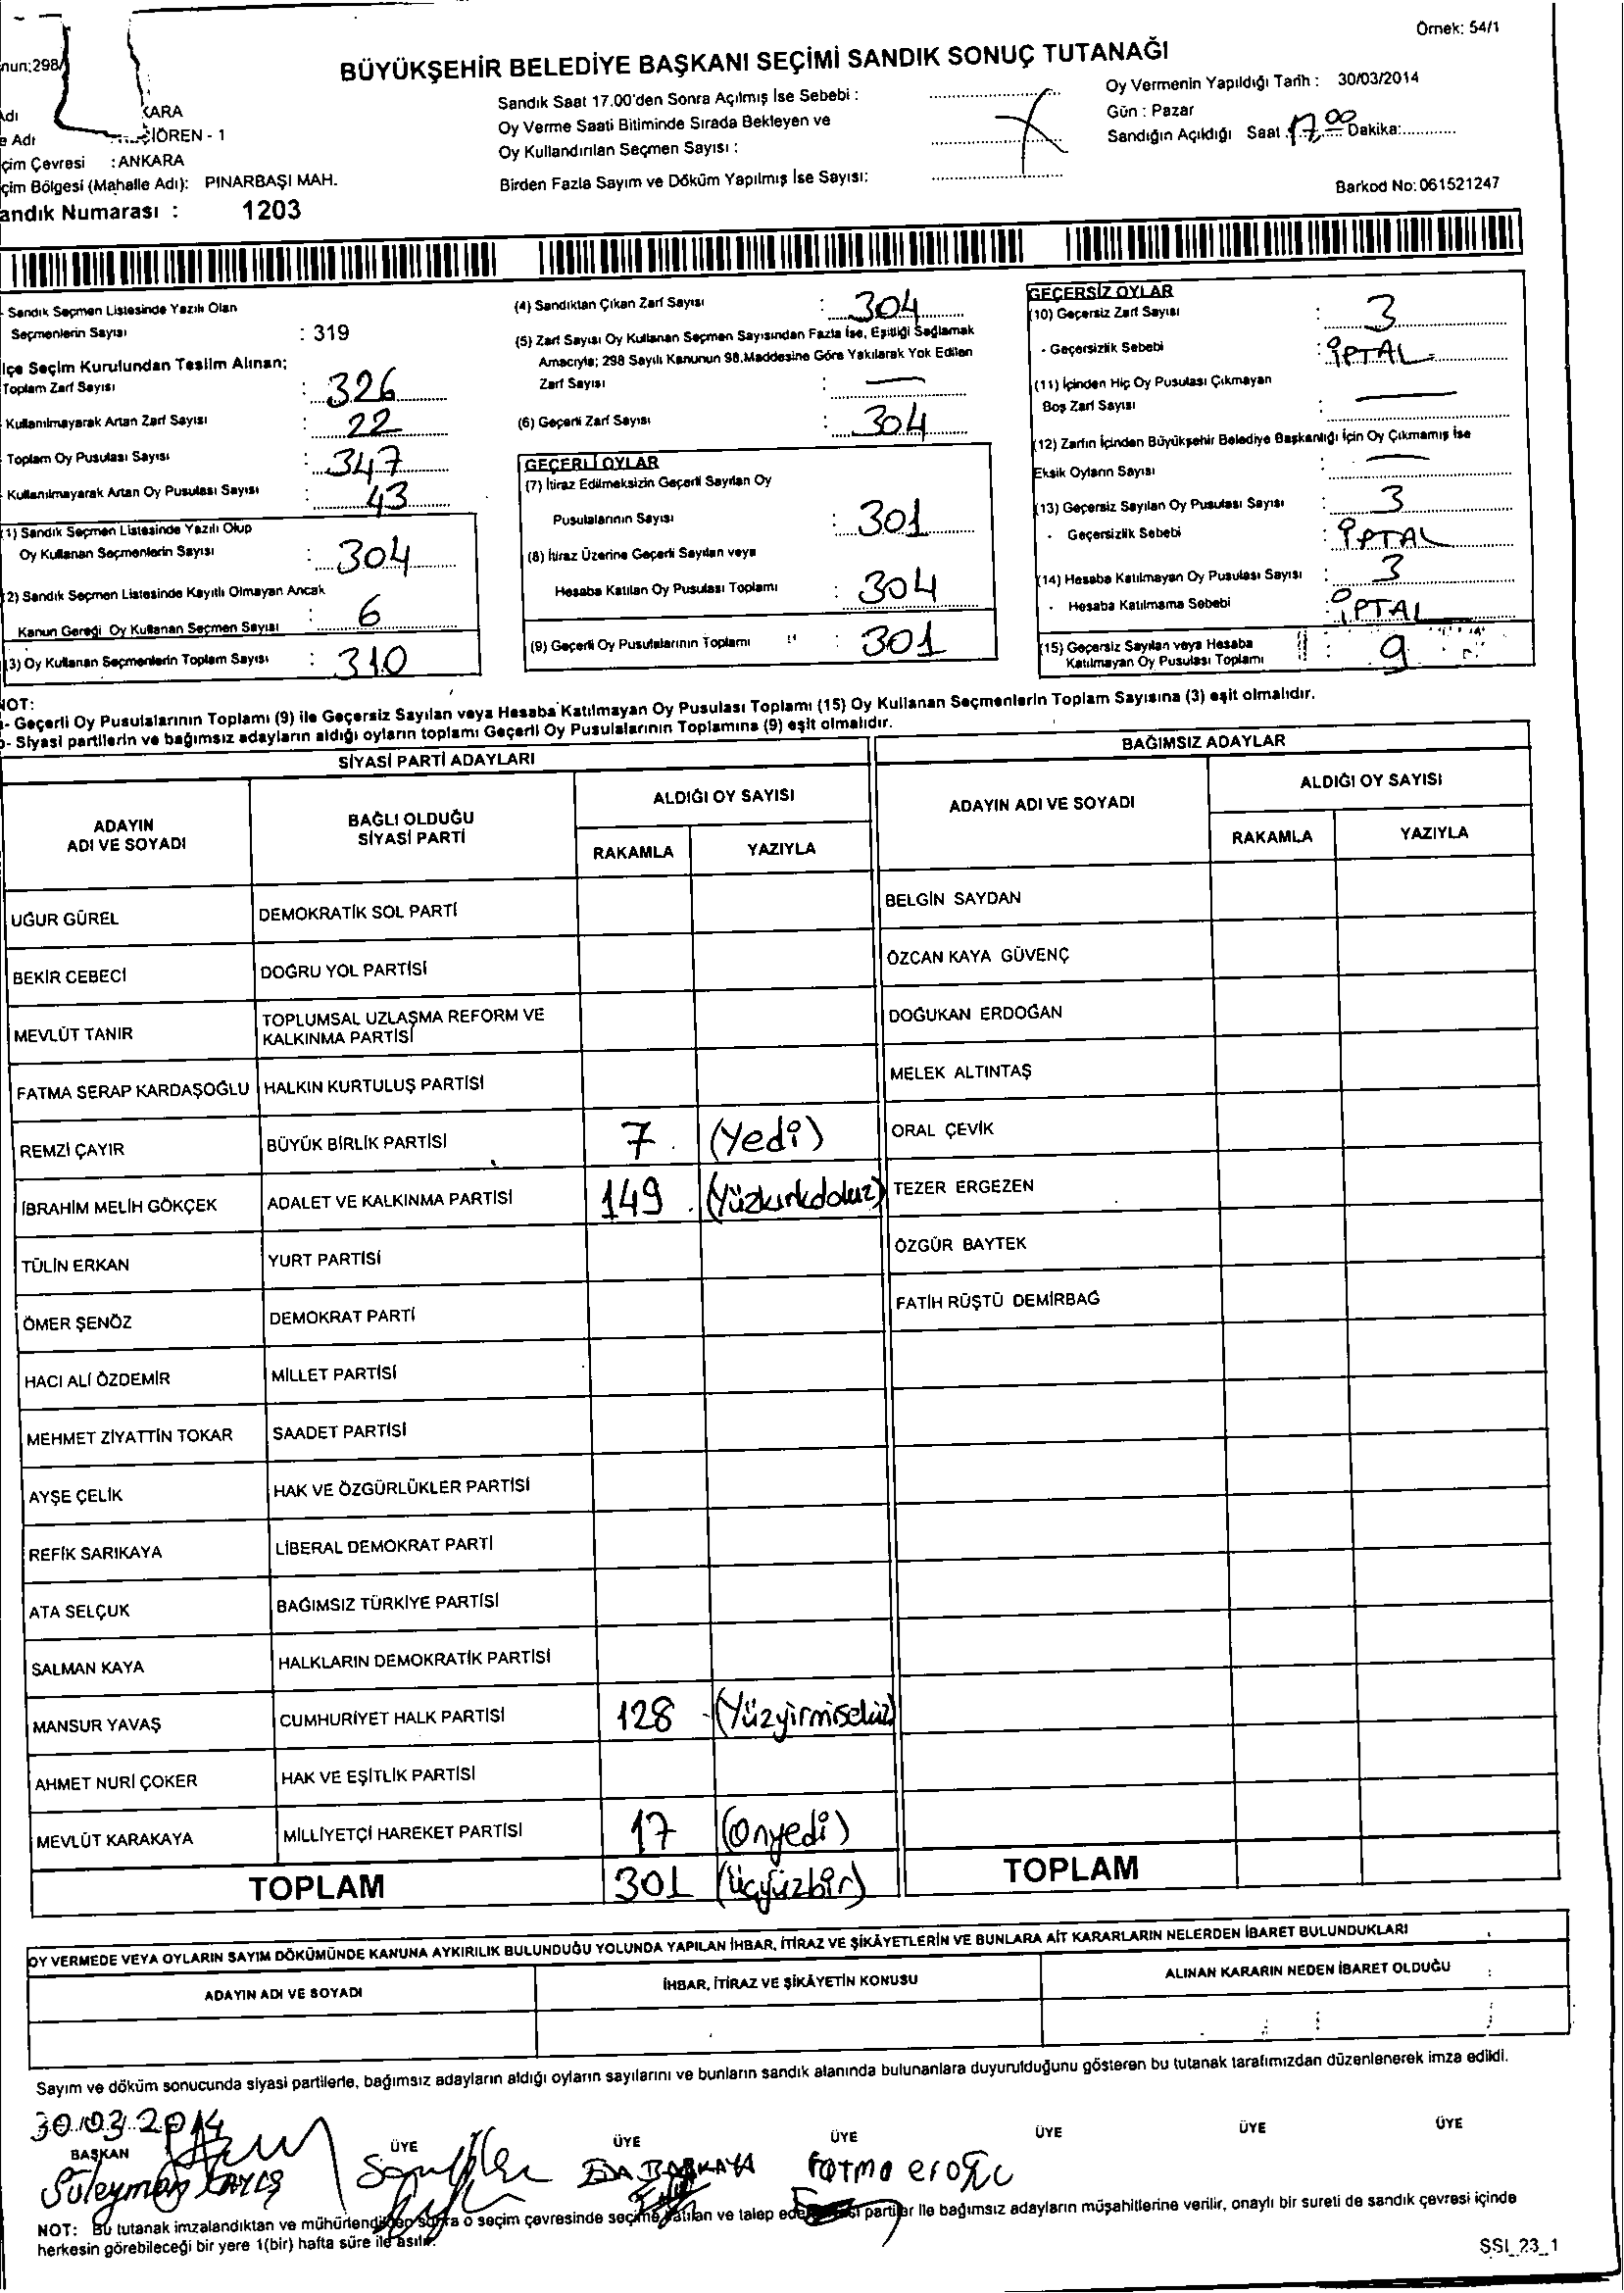 Örnek: 54/1
BÜYÜKŞEHİR BELEDİYE BAŞKANI SEÇİMİ SANDIK SONUÇ TUTANAĞI
nun;298/
Adı KARA
e Adı ÇİÖREN - 1
çim Çevresi : ANKARA
çim Bölgesi (Mahalle Adı): PINARBAŞI MAH.
andık Numarası : 1203
Sandık Saat 17.00'den Sonra Açılmış İse Sebebi :
Oy Verme Saati Bitiminde Sırada Bekleyen ve
Oy Kullandırılan Seçmen Sayısı :
Birden Fazla Sayım ve Döküm Yapılmış İse Sayısı:
Oy Vermenin Yapıldığı Tarih : 30/03/2014
Gün : Pazar
Sandığın Açıldığı Saat 17,00 Dakika:
Barkod No: 061521247
- Sandık Seçmen Listesinde Yazılı Olan
Seçmenlerin Sayısı : 319
lçe Seçim Kurulundan Teslim Alınan;
Toplam Zarf Sayısı : 326
- Kullanılmayarak Artan Zarf Sayısı : 22
- Toplam Oy Pusulası Sayısı : 347
- Kullanılmayarak Artan Oy Pusulası Sayısı : 43
(1) Sandık Seçmen Listesinde Yazılı Olup
Oy Kullanan Seçmenlerin Sayısı : 304
(2) Sandık Seçmen Listesinde Kayıtlı Olmayan Ancak
Kanun Gereği Oy Kullanan Seçmen Sayısı : 6
(3) Oy Kullanan Seçmenlerin Toplam Sayısı : 310
(4) Sandıktan Çıkan Zarf Sayısı : 304
(5) Zarf Sayısı Oy Kullanan Seçmen Sayısından Fazla İse, Eşitliği Sağlamak
Amacıyla; 298 Sayılı Kanunun 98.Maddesine Göre Yakılarak Yok Edilen
Zarf Sayısı : —
(6) Geçerli Zarf Sayısı : 304
GEÇERLİ OYLAR
(7) İtiraz Edilmeksizin Geçerli Sayılan Oy
Pusulalarının Sayısı : 301
(8) İtiraz Üzerine Geçerli Sayılan veya
Hesaba Katılan Oy Pusulası Toplamı : 304
(9) Geçerli Oy Pusulalarının Toplamı : 301
GEÇERSİZ OYLAR
(10) Geçersiz Zarf Sayısı : 3
- Geçersizlik Sebebi : İPTAL
(11) İçinden Hiç Oy Pusulası Çıkmayan
Boş Zarf Sayısı : —
(12) Zarfın İçinden Büyükşehir Belediye Başkanlığı İçin Oy Çıkmamış İse
Eksik Oyların Sayısı : —
(13) Geçersiz Sayılan Oy Pusulası Sayısı : 3
- Geçersizlik Sebebi : İPTAL
(14) Hesaba Katılmayan Oy Pusulası Sayısı : 3
- Hesaba Katılmama Sebebi : İPTAL
(15) Geçersiz Sayılan veya Hesaba
Katılmayan Oy Pusulası Toplamı : 9
NOT:
- Geçerli Oy Pusulalarının Toplamı (9) ile Geçersiz Sayılan veya Hesaba Katılmayan Oy Pusulası Toplamı (15) Oy Kullanan Seçmenlerin Toplam Sayısına (3) eşit olmalıdır.
b- Siyasi partilerin ve bağımsız adayların aldığı oyların toplamı Geçerli Oy Pusulalarının Toplamına (9) eşit olmalıdır.
SİYASİ PARTİ ADAYLARI
BAĞIMSIZ ADAYLAR
ADAYIN
ADI VE SOYADI
BAĞLI OLDUĞU
SİYASİ PARTİ
ALDIĞI OY SAYISI
RAKAMLA YAZIYLA
ADAYIN ADI VE SOYADI
ALDIĞI OY SAYISI
RAKAMLA YAZIYLA
UĞUR GÜREL DEMOKRATİK SOL PARTİ BELGİN SAYDAN
BEKİR CEBECİ DOĞRU YOL PARTİSİ ÖZCAN KAYA GÜVENÇ
MEVLÜT TANIR TOPLUMSAL UZLAŞMA REFORM VE
KALKINMA PARTİSİ DOĞUKAN ERDOĞAN
FATMA SERAP KARDAŞOĞLU HALKIN KURTULUŞ PARTİSİ MELEK ALTINTAŞ
REMZİ ÇAYIR BÜYÜK BİRLİK PARTİSİ 7 (Yedi) ORAL ÇEVİK
İBRAHİM MELİH GÖKÇEK ADALET VE KALKINMA PARTİSİ 149 (Yüzkırkdokuz) TEZER ERGEZEN
TÜLİN ERKAN YURT PARTİSİ ÖZGÜR BAYTEK
ÖMER ŞENÖZ DEMOKRAT PARTİ FATİH RÜŞTÜ DEMİRBAĞ
HACI ALİ ÖZDEMİR MİLLET PARTİSİ
MEHMET ZİYATTİN TOKAR SAADET PARTİSİ
AYŞE ÇELİK HAK VE ÖZGÜRLÜKLER PARTİSİ
REFİK SARIKAYA LİBERAL DEMOKRAT PARTİ
ATA SELÇUK BAĞIMSIZ TÜRKİYE PARTİSİ
SALMAN KAYA HALKLARIN DEMOKRATİK PARTİSİ
MANSUR YAVAŞ CUMHURİYET HALK PARTİSİ 128 (Yüzyirmisekiz)
AHMET NURİ ÇOKER HAK VE EŞİTLİK PARTİSİ
MEVLÜT KARAKAYA MİLLİYETÇİ HAREKET PARTİSİ 17 (Onyedi)
TOPLAM 301 (üçyüzbir) TOPLAM
OY VERMEDE VEYA OYLARIN SAYIM DÖKÜMÜNDE KANUNA AYKIRILIK BULUNDUĞU YOLUNDA YAPILAN İHBAR, İTİRAZ VE ŞİKÂYETLERİN VE BUNLARA AİT KARARLARIN NELERDEN İBARET BULUNDUKLARI
ADAYIN ADI VE SOYADI İHBAR, İTİRAZ VE ŞİKÂYETİN KONUSU ALINAN KARARIN NEDEN İBARET OLDUĞU
Sayım ve döküm sonucunda siyasi partilerle, bağımsız adayların aldığı oyların sayılarını ve bunların sandık alanında bulunanlara duyurulduğunu gösteren bu tutanak tarafımızdan düzenlenerek imza edildi.
30.03.2014
BAŞKAN ÜYE ÜYE ÜYE ÜYE ÜYE ÜYE
Süleyman Fatma
NOT: Bu tutanak imzalandıktan ve mühürlendikten sonra o seçim çevresinde seçime katılan ve talep eden siyasi partiler ile bağımsız adayların müşahitlerine verilir, onaylı bir sureti de sandık çevresi içinde
herkesin görebileceği bir yere 1(bir) hafta süre ile asılır.
SSI_23_1